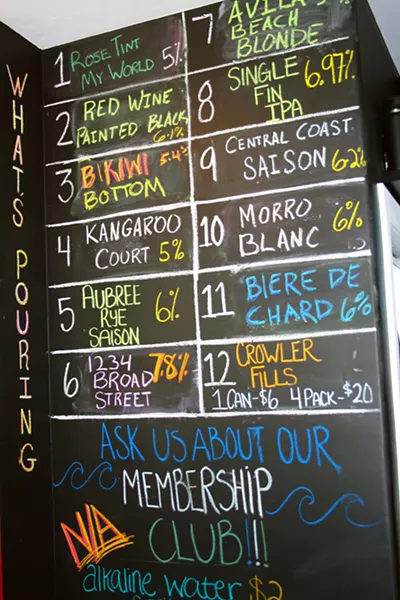 WHAT'S POURING
1 ROSE TINT
MY WORLD 5%
2 RED WINE
PAINTED BLACK
6.1%
3 BIKIWI 5.4%
BOTTOM
4 KANGAROO
COURT 5%
5 AUBREE
RYE 6%
SAISON
6 1234 7.8%
BROAD
STREET
7 AVILA
BEACH
BLONDE
8 SINGLE 6.97%
FIN
IPA
9 CENTRAL COAST
SAISON 6.2%
10 MORRO 6%
BLANC
11 BIERE DE
CHARD 6%
12 CROWLER
FILLS
1 CAN-$6 4 PACK-$20
ASK US ABOUT OUR
MEMBERSHIP
CLUB!!!
N/A
alkaline water $2